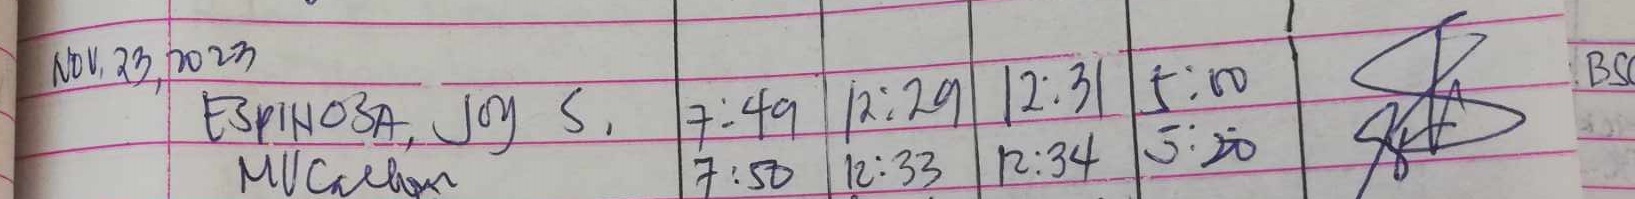 NOV. 23, 2023
ESPINOSA, JOY S. 7:49 12:29 12:31 5:00
7:50 12:33 12:34 5:20
BSC